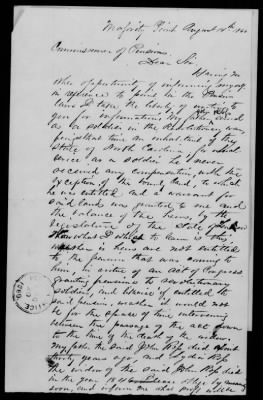 Point August 18th
Commissioner of Pensions
Dear Sir
Having no
other opportunity of informing myself
in reference to points in the Pension
laws I take the liberty of writing to
you for information. My father served
as a soldier in the Revolutionary war,
from that time an inhabitant of the
State of North Carolina for which
service as a soldier he never
received any compensation, with the
exception of the bounty land, to which
he was entitled and a warrant for
said land was granted to me and
the balance of the heirs, by the
legislature of the State of
what I wish to know is this
whether is heirs are not entitled
to the pension that was coming to
him, in virtue of an act of Congress
granting pensions to revolutionary
soldiers, and hence if entitled to
said pension, whether it would not
be for the space of time intervening
between the passage of the act down
to the time of the death of the widow
my father the said John died about
thirty years ago, and Lydia
the widow of the said John died
in the year 184 Please reply by
soon, and inform me